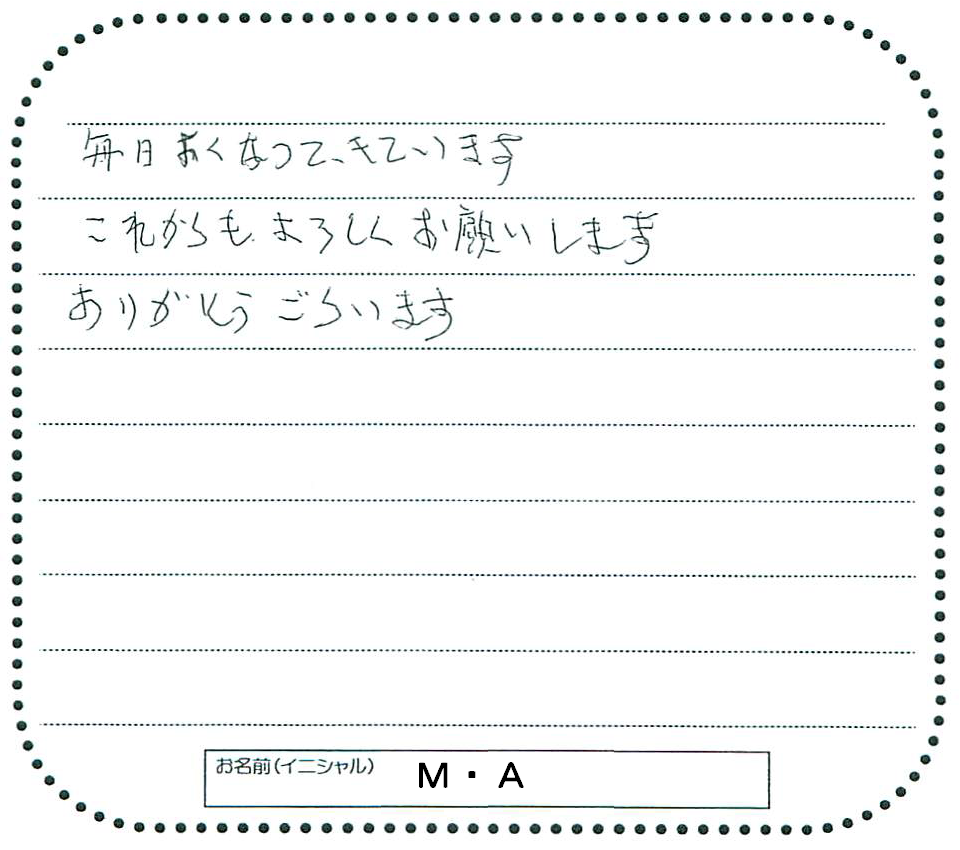 毎日よくなってきています
これからもよろしくお願いします
ありがとうございます
お名前(イニシャル) M・A